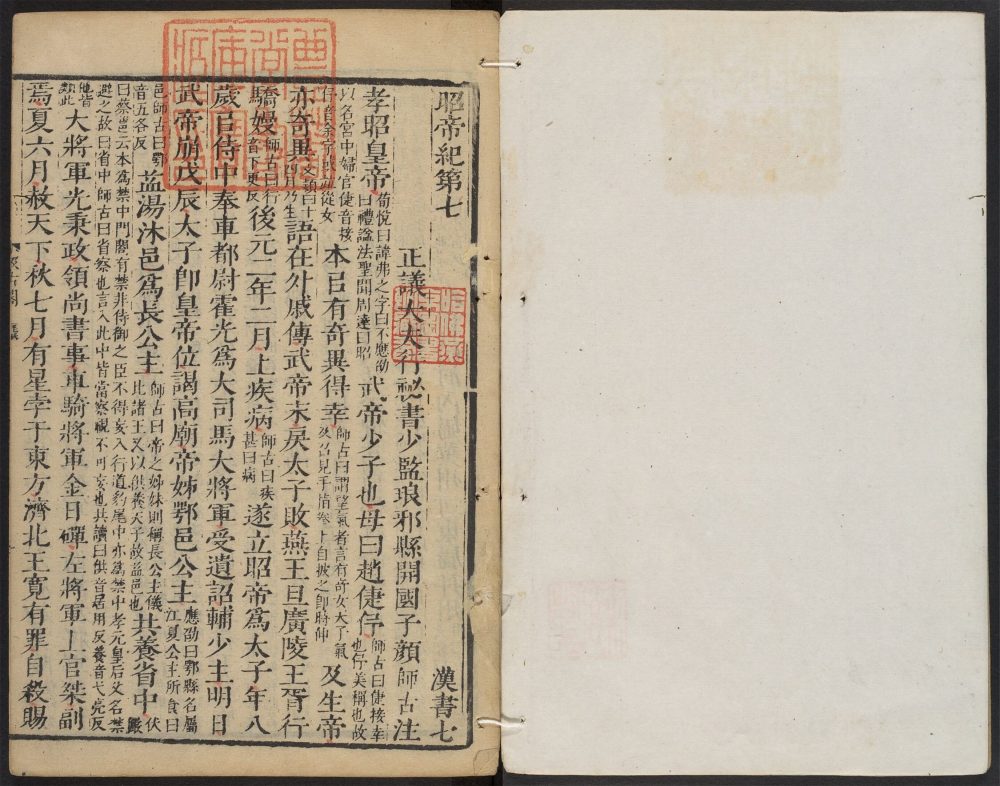 昭帝紀第七 漢書七
正議大夫行祕書少監琅邪縣開國子顏師古注
孝昭皇帝荀悅曰諱弗之字曰不應劭曰禮謚法聖聞周達曰昭武帝少子也母曰趙倢伃師古曰倢接幸也伃美稱也故
以名宮中婦官倢音接伃音余字或並從女本㠯有奇異得幸師古曰謂望氣者言有奇女天子氣及召見手指拳上自披之即時伸及生帝
亦奇異文穎曰十四月乃生語在外戚傳武帝末戾太子敗燕王旦廣陵王胥行
驕嫚師古曰行音下更反後元二年二月上疾病師古曰疾甚曰病遂立昭帝爲太子年八
歲㠯侍中奉車都尉霍光爲大司馬大將軍受遺詔輔少主明日
武帝崩戊辰太子即皇帝位謁高廟帝姊鄂邑公主應劭曰鄂縣名屬江夏公主所食曰
邑師古曰鄂音五各反益湯沐邑爲長公主師古曰帝之姊妹則稱長公主儀比諸王又以供養天子故益邑也共養省中伏儼
曰蔡邕云本爲禁中門閤有禁非侍御之臣不得妄入行道豹尾中亦爲禁中孝元皇后父名禁
避之故曰省中師古曰省察也言入此中皆當察視不可妄也共讀曰供音居用反養音弋亮反
他皆類此大將軍光秉政領尚書事車騎將軍金日磾左將軍上官桀副
焉夏六月赦天下秋七月有星孛于東方濟北王寬有罪自殺賜